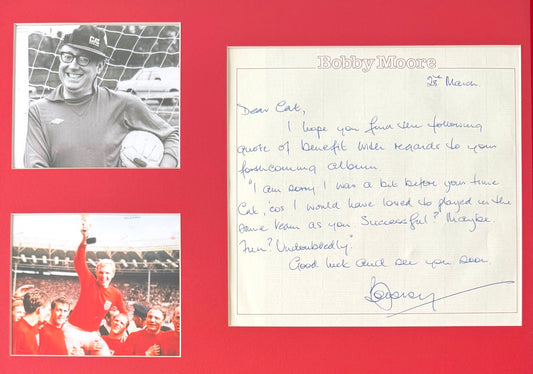 CAT
Bobby Moore
23rd March.
Dear Cat,
I hope you find the following
quote of benefit with regards to your
forthcoming album.
"I am sorry I was a bit before your time
Cat, 'cos I would have loved to played in the
same team as you. Successful? Maybe.
Fun? Undoubtedly".
Good luck and see you soon.